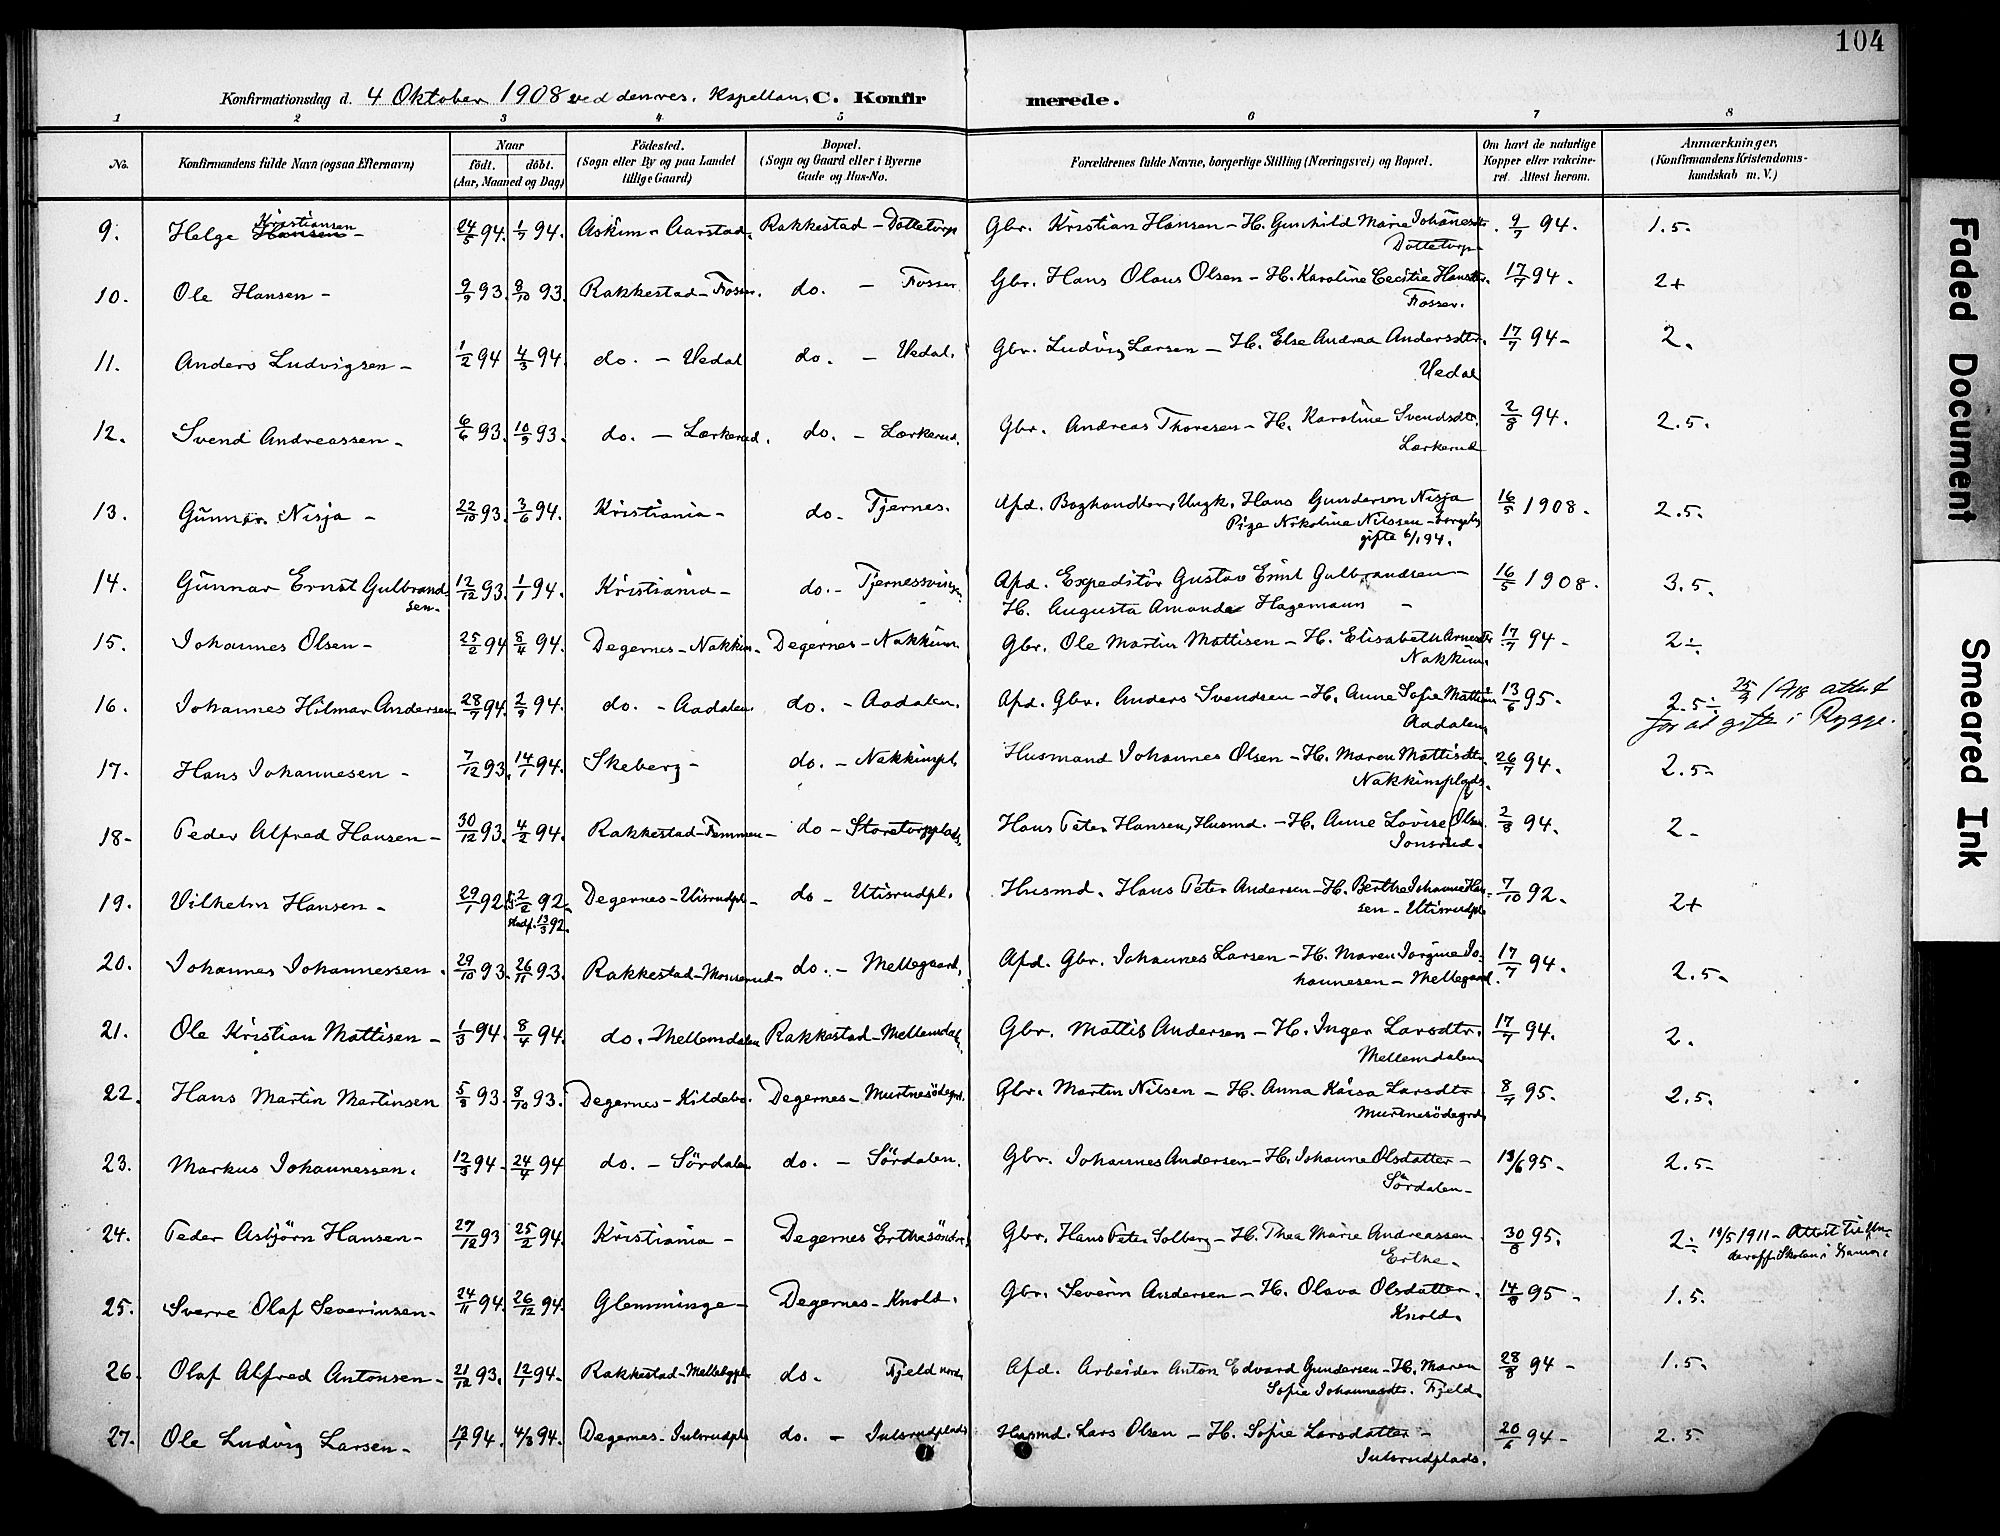 104
Konfirmationsdag d. 4 Oktober 1908 ved den res. Kapellan. C. Konfirmerede.
1 2 3 4 5 6 7 8
No. Konfirmandens fulde Navn (ogsaa Efternavn) Naar født. døbt. (Aar, Maaned og Dag) Fødested. (Sogn eller By og paa Landet tillige Gaard) Bopæl. (Sogn og Gaard eller i Byerne Gade og Hus-No. Forældrenes fulde Navne, borgerlige Stilling (Næringsvei) og Bopæl. Om havt de naturlige Kopper eller vakcineret. Attest herom. Anmærkninger, (Konfirmandens Kristendomskundskab m. V.)
9. Helge Hansen Kristiansen - 24/5 94. 1/7 94. Askim - Aarstad. Rakkestad - Dattetorp Gbr. Kristian Hansen - H. Gunhild Marie Johannesdtr. Dattetorp 9/7 94. 1.5-
10. Ole Hansen - 9/9 93. 8/10 93. Rakkestad - Fosser. do. - Fosser Gbr. Hans Olaus Olsen - H. Karoline Cecilie Hansdtr. Fosser. 17/7 94. 2+
11. Anders Ludvigsen - 1/2 94 4/3 94. do. - Vedal do. - Vedal. Gbr. Ludvig Larsen - H. Else Andrea Andersdtr. Vedal 17/7 94- 2.
12. Svend Andreassen - 6/6 93. 10/9 93. do. - Lærkerud. do. - Lærkerud. Gbr. Andreas Thoresen - H. Karoline Svendsdtr. Lærkerud 2/8 94. 2.5.
13. Gunnar Nisja - 22/10 93. 3/6 94. Kristiania - do- Tjernes. Afd. Boghandler, Ungk. Hans Gundersen Nisja Pige Nikoline Nilssen - borgerlig gifte 6/1 94. 16/5 1908. 2.5.
14. Gunnar Ernst Gulbrandsen- 12/12 93. 1/1 94. Kristiania - do.- Tjernessvingen. Afd. Expeditör Gustav Emil Gulbrandsen - H. Augusta Amanda Hagemann - 16/5 1908. 3.5.
15. Johannes Olsen - 25/2 94 8/4 94. Degernes - Nakkim. Degernes - Nakkim. Gbr. Ole Martin Mattisen - H. Elisabeth Arnesdtr. Nakkim. 17/7 94- 2÷
16. Johannes Hilmar Andersen 28/7 94. 2/9 94. do. - Aadalen do. - Aadalen. Afd. Gbr. Anders Svendsen - H. Anne Sofie Mattisen Aadalen 13/6 95- 2.5÷ 25/3 1918 attest for at gifte i Rygge.
17. Hans Johannesen - 7/12 93. 14/1 94. Skeberg - do. - Nakkimpl. Husmand Johannes Olsen - H. Maren Mattisdtr. Nakkimsplads. 26/7 94. 2.5-
18- Peder Alfred Hansen - 30/12 93. 4/2 94. Rakkestad - Femmen - do - Storetorpplads. Hans Peter Hansen, Husmd. - H. Anne Lovise Olsen Jonsrud. 2/8 94. 2-
19. Vilhelm Hansen - 29/1 92. 2/2 92. 13/3 92. Degernes - Utisrudpl. - do - Utisrudpl. Husmd. Hans Peter Andersen - H. Berthe Johanne Hansen - Utisrudpl. 7/10 92. 2+
20. Johannes Johannessen. 29/10 93. 26/11 93. Rakkestad - Monserud - do. - Mellegaard. Afd. Gbr. Johannes Larsen - H. Maren Jorgine Johannesen - Mellegaard. 17/7 94. 2.5-
21. Ole Kristian Mattisen - 1/3 94. 8/4 94. do. - Mellemdalen Rakkestad - Mellemdal. Gbr. Mattis Andersen - H. Inger Larsdtr. Mellemdalen 17/7 94. 2.
22. Hans Martin Martinsen 5/8 93. 8/10 93. Degernes - Kildebo. Degernes - Murtnesödegrd. Gbr. Martin Nilsen - H. Anna Kaisa Larsdtr. Murtnesödegrd. 8/7 95. 2.5.
23. Markus Johannessen. 12/3 94- 24/4 94 do. - Sördalen do. - Sördalen. Gbr. Johannes Andersen - H. Johanne Olsdatter - Sördalen - 13/6 95- 2.5-
24. Peder Asbjörn Hansen - 27/12 93 25/2 94. Kristiania - Degernes Erthesöndre Gbr. Hans Peter Solberg - H. Thea Marie Andreassen Erthe - 30/8 95. 2÷ 19/5 1911 - Attest til Underoff. Skolen i Hamar.
25. Sverre Olaf Severinsen - 24/11 94. 26/12 94. Glemminge - Degernes - Knold. Gbr. Severin Andersen - H. Olava Olsdatter. Knold. 14/8 95- 1.5.
26. Olaf Alfred Antonsen - 21/12 93. 12/1 94- Rakkestad - Mellebypl. do. Fjeld nord. Afd. Arbeider Anton Edvard Gundersen - H. Maren Sofie Johannesdtr. Fjeld. 28/8 94- 1.5.
27. Ole Ludvig Larsen - 13/1 94. 4/3 94. Degernes - Julsrudpl. do. - Julsrudplads Husmd. Lars Olsen - H. Sofie Larsdatter - Julsrudplads. 20/6 94- 2.5
Faded Document
Smeared Ink